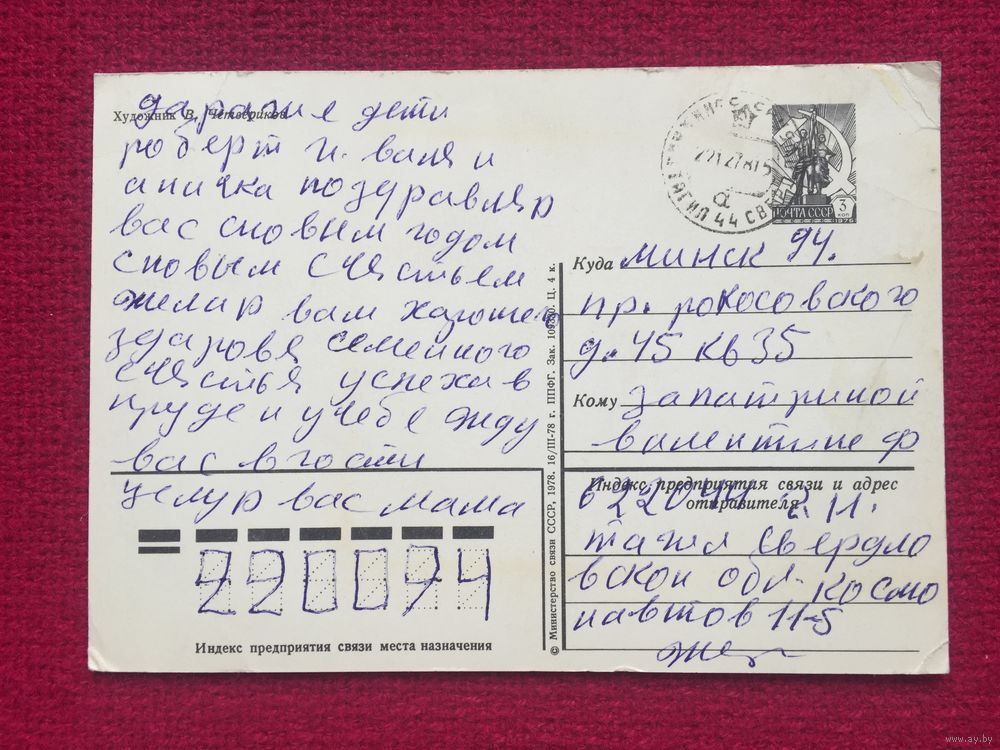 Художник В. Четвериков
дарагие дети
роберт и. валя и
аничка поздравляр
вас сновым годом
сновым счястьем
желир вам харошего
здаровя семейного
счястья успехав
труде и учебе жду
вас вгости
целур вас мама
220074
Индекс предприятия связи места назначения
© Министерство связи СССР, 1978. 16/III-78 г. ППФГ. Зак. Ц. 4 к.
ТАГИЛ 44 СВЕРД
ПОЧТА СССР 3 коп 1976
Куда минск 94.
пр. рокосовского
д. 45 кв 35
Кому запатриной
валентине ф
Индекс предприятия связи и адрес отправителя
622044 г. н.
тагил свердло
вской обл. космо
навтов 11-5
www.ay.by